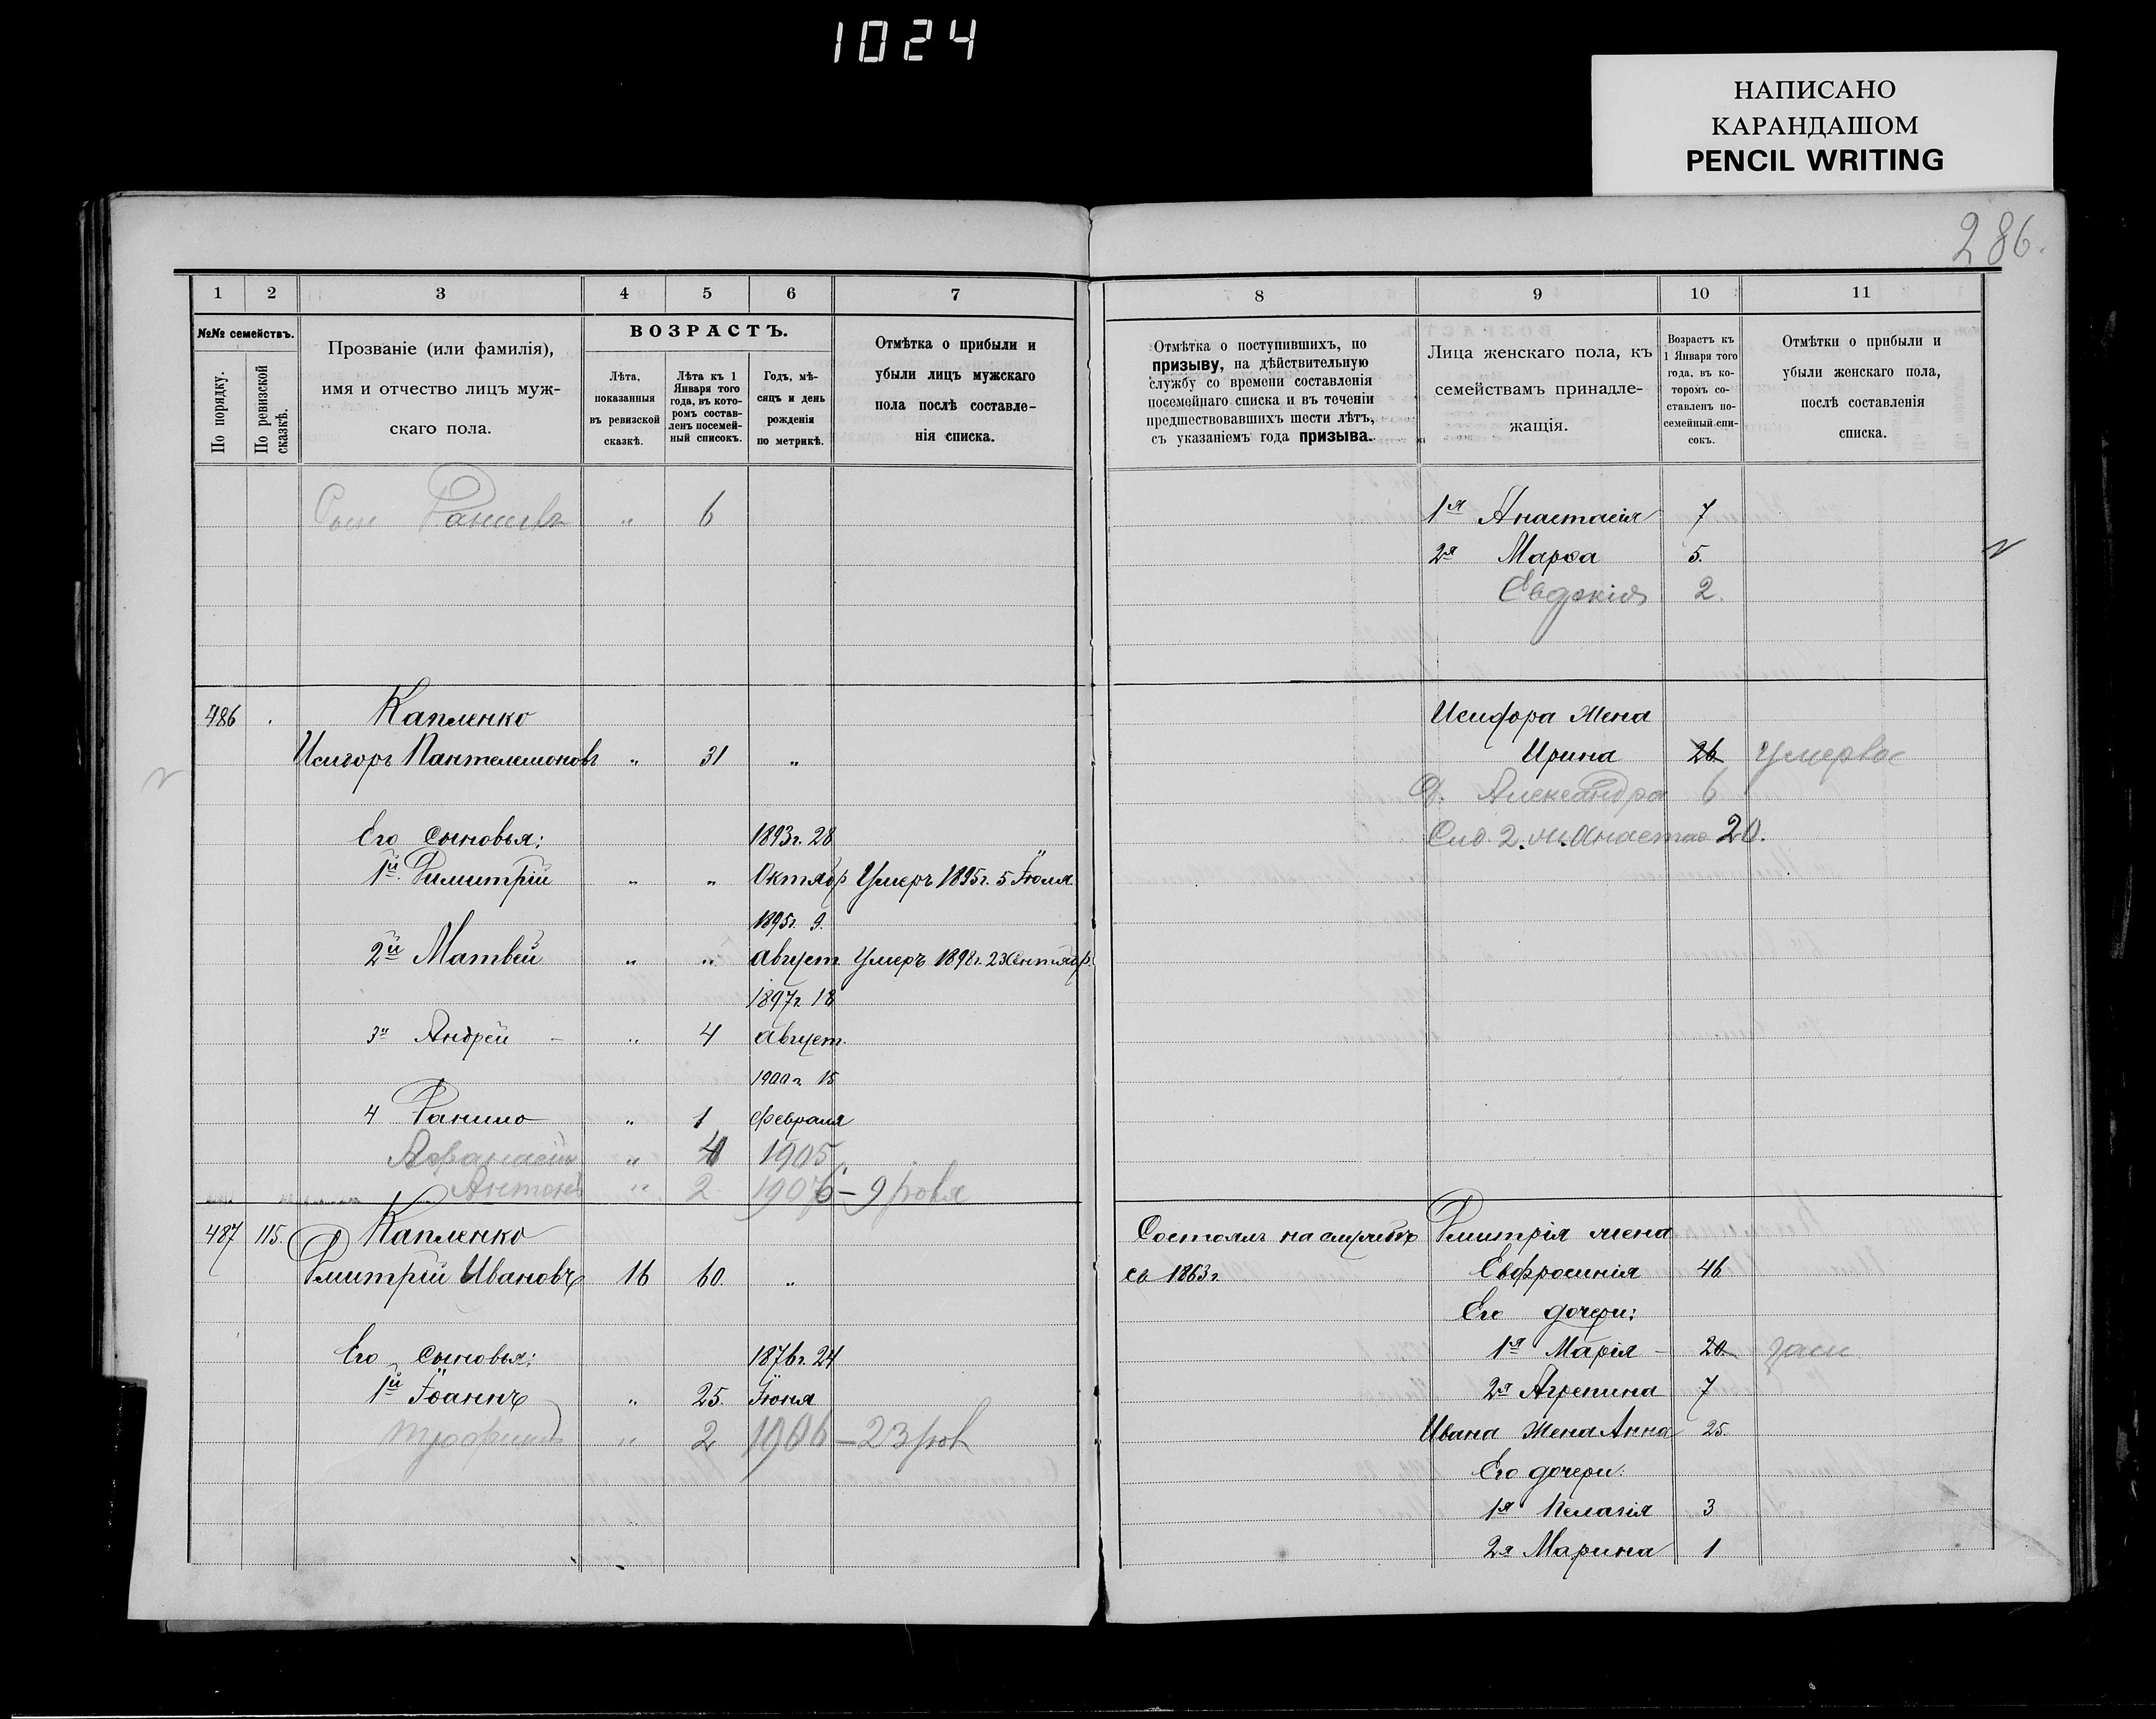 1024
НАПИСАНО
КАРАНДАШОМ
PENCIL WRITING
286.
1 2 3 4 5 6 7
№№ семействъ.
По порядку.
По ревизской сказкѣ.
Прозваніе (или фамилія),
имя и отчество лицъ муж-
скаго пола.
ВОЗРАСТЪ.
Лѣта,
показанныя
въ ревизской
сказкѣ.
Лѣта къ 1
Января того
года, въ кото-
ромъ состав-
ленъ посемей-
ный списокъ.
Годъ, мѣ-
сяцъ и день
рожденія
по метрикѣ.
Отмѣтка о прибыли и
убыли лицъ мужскаго
пола послѣ составле-
нія списка.
" 6
486 . Капленко
Исидоръ Пантелемоновъ " 31 "
Его сыновья: 1893г. 28
1й Димитрій " " Октябр Умеръ 1895г. 5 Іюля
1895г. 9.
2й Матвей " " август. Умеръ 1898г. 23 Сентябр.
1897г. 18
3й Андрей - " 4 август.
1900г. 15
4 Данило " 1 февраля
Афанасій " 4 1905
Антонъ " 2 1906 – 9
487 115. Капленко
Дмитрій Ивановъ 16 60. "
Его сыновья: 1876г. 24
1й Іоаннъ " 25. Іюня
Трофимъ " 2 1906 – 23
8 9 10 11
Отмѣтка о поступившихъ, по
призыву, на дѣйствительную
службу со времени составленія
посемейнаго списка и въ теченіи
предшествовавшихъ шести лѣтъ,
съ указаніемъ года призыва.
Лица женскаго пола, къ
семействамъ принадле-
жащія.
Возрастъ къ
1 Января того
года, въ ко-
торомъ со-
ставленъ по-
семейный спи-
сокъ.
Отмѣтки о прибыли и
убыли женскаго пола,
послѣ составленія
списка.
1я Анастасія 7
2я Марѳа 5.
Евдокія 2.
Исидора жена
Ирина 26
Д. Александра 6
2. ж. Анастас 20.
Состоялъ на службѣ Дмитрія жена
съ 1863г. Евфросинія 46
Его дочери:
1я Марія - 20. зам
2я Агрепина 7
Ивана жена Анна 25.
Его дочери:
1я Пелагія 3
2я Марина 1